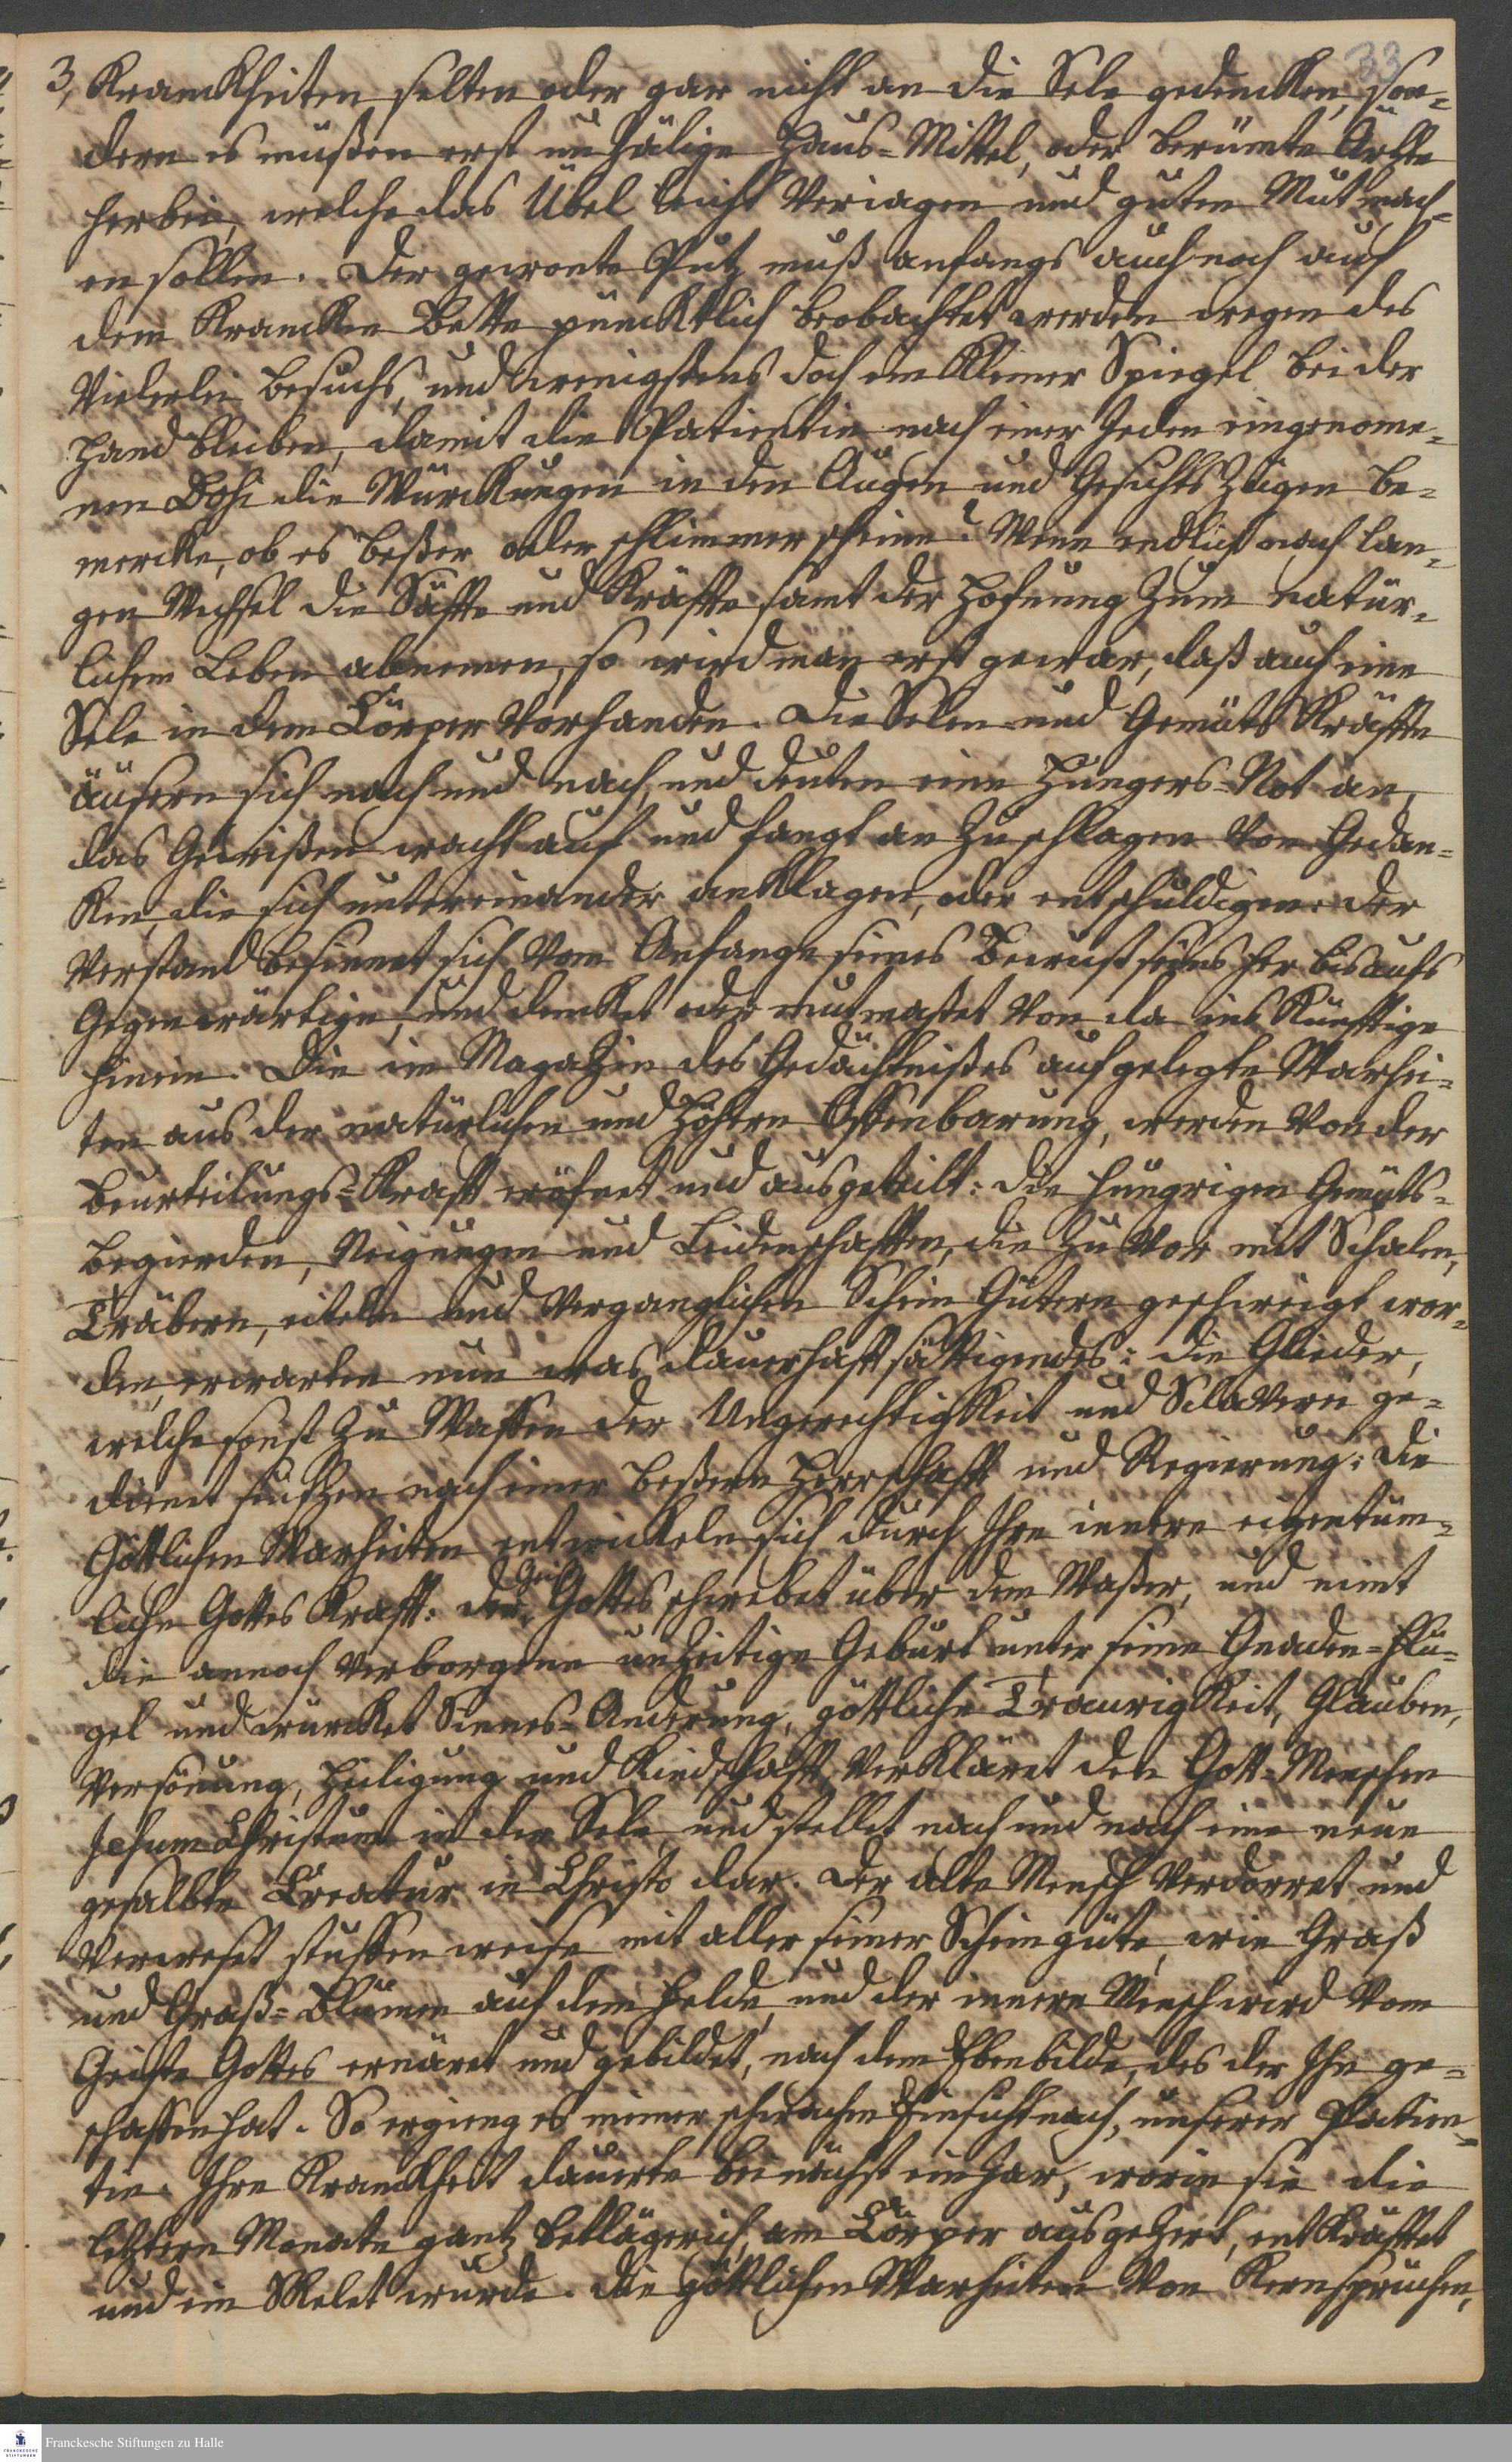 33
3, Kranckheiten selten oder gar nicht an die Sele gedencken, son-
dern es müßen erst unzälige Haus-Mittel, oder berümte Ärtzte
herbei, welche das Übel leicht verjagen und guten Mut mach-
en sollen. Der gewonte Putz muß anfangs auch noch auf
dem Krancken Bette püncktlich beobachtet werden wegen des
vielerlei Besuchs, und wenigstens doch ein kleiner Spiegel bei der
Hand bleiben, damit die Patientin nach einer jeden eingenome-
nen Dosi die Würckungen in den Augen und Gesichts Zügen be-
mercke, ob es beßer oder schlimmer scheine? Wenn endlich nach lan-
gen Wechsel die Säffte und Kräffte samt der Hofnung zum natür-
lichen Leben abnemen, so wird man erst gewar, daß auch eine
Sele in dem Cörper vorhanden. Die Selen- und Gemüts Kräffte
äusern sich nach und nach, und deuten eine Hungers-Not an,
das Gewißen wacht auf und fangt an zu schlagen von Gedan-
ken, die sich untereinander anklagen, oder entschuldigen: der
Verstand besinnet sich vom Anfange seines Bewust seins her bis aufs
Gegenwärtige, und dencket oder mutmaßet von da ins Künfftige
hinein. Die im Magazin des Gedächtnißes aufgelegte Warhei-
ten aus der natürlichen und Höhern Offenbarung, werden von der
Beurteilungs-Krafft eröfnet und ausgeteilt: die hungrigen Gemüts-
Begierden, Neigungen und Leidenschafften, die zuvor mit Schalen,
Träbern, eiteln und verganglichen Schein Gütern geschweigt wor-
den, erwarten nun was dauerhafft sättigendes: die Glieder,
welche sonst zu Waffen der Ungerechtigkeit und Sclaverei ge-
dienet seufzen nach einer beßern Herrschafft und Regierung: die
Göttlichen Warheiten entwickeln sich durch Ihre innere eigentüm-
liche Gottes Krafft: der Geist Gottes schwebet über dem Waßer, und nimt
die annoch verborgene unzeitige Geburt unter seine Gnaden-Flü-
gel und würcket Sinnes-Anderung, göttliche Traurigkeit, Glauben,
Versönung, Heiligung und Kindschafft, verkläret den Gott-Menschen
Jesum Christum in der Sele, und stellet nach und nach eine neue
gesalbte Creatur in Christo dar. Der alte Mensch verdorret und
verweset stuffen weise mit aller seiner Scheingüte, wie Graß
und Graß-Blumen auf dem Felde, und der innere Mensch wird vom
Geiste Gottes ernäret und gebildet, nach dem Ebenbilde, des der Ihn ge-
schaffen hat. So ergieng es meiner schwachen Einsicht nach, unserer Patien-
tin. Ihre Kranckheit dauerte bei nächst ein Jar, worin sie die
letztern Monate gantz bettlägerich, am Cörper ausgezert, entkräfftet
und ein Skelet wurde. Die göttlichen Warheiten von Kernsprüchen,
Franckesche Stiftungen zu Halle